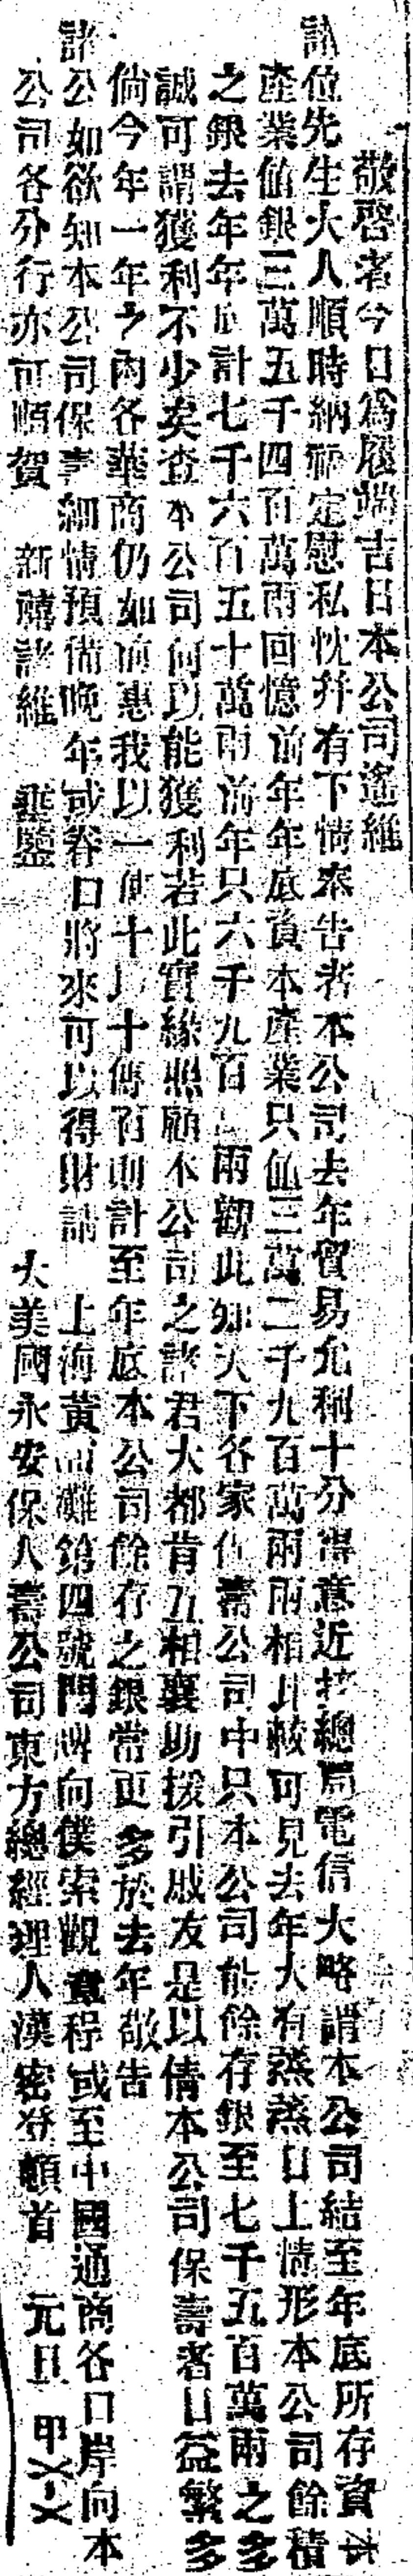 敬啓者今日爲履端吉日本公司遙維
諸位先生大人順時納福定慰私忱幷有下情奉告者本公司去年貿易允稱十分得意近接總局電信大略謂本公司結至年底所存資本
產業値銀三萬五千四百萬兩回憶前年年底資本產業只値三萬二千九百萬兩兩相比較可見去年大有蒸蒸日上情形本公司餘積
之銀去年年底計七千六百五十萬兩前年只六千九百 兩觀此知天下各家保壽公司中只本公司能餘存銀至七千五百萬兩之多
誠可謂獲利不少矣查本公司何以能獲利若此實緣照顧本公司之諸君大都肯互相襄助援引戚友是以倩本公司保壽者日益繁多
倘今年一年之內各華商仍如前惠我以一傳十以十傳百則計至年底本公司餘存之銀當更多於去年敬告
諸公如欲知本公司保壽細情預備晚年或眷口將來可以得財請 上海黃浦灘第四號門牌向僕索觀章程或至中國通商各口岸向本
公司各分行亦可順賀 新禧諸維 垂鑒 大美國永安保人壽公司東方總經理人漢密登頓首 元旦 甲〤〤